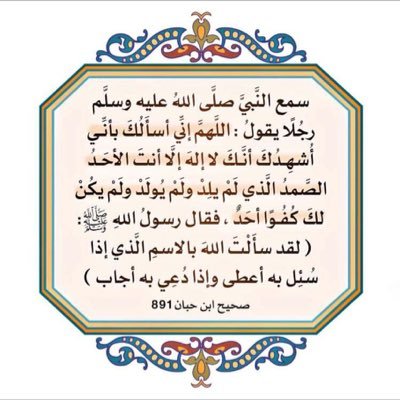 سمع النَّبيَّ صلَّى اللهُ عليه وسلَّم
رجُلًا يقولُ : اللَّهمَّ إنِّي أسأَلُكَ بأنِّي
أُشهِدُكَ أنَّكَ لا إلهَ إلَّا أنتَ الأحَدُ
الصَّمدُ الَّذي لَمْ يلِدْ ولَمْ يُولَدْ ولَمْ يكُنْ
لكَ كُفُوًا أحَدٌ ، فقال رسولُ اللهِ ﷺ :
( لقد سأَلْتَ اللهَ بالاسمِ الَّذي إذا
سُئِل به أعطى وإذا دُعِي به أجاب )
صحيح ابن حبان891